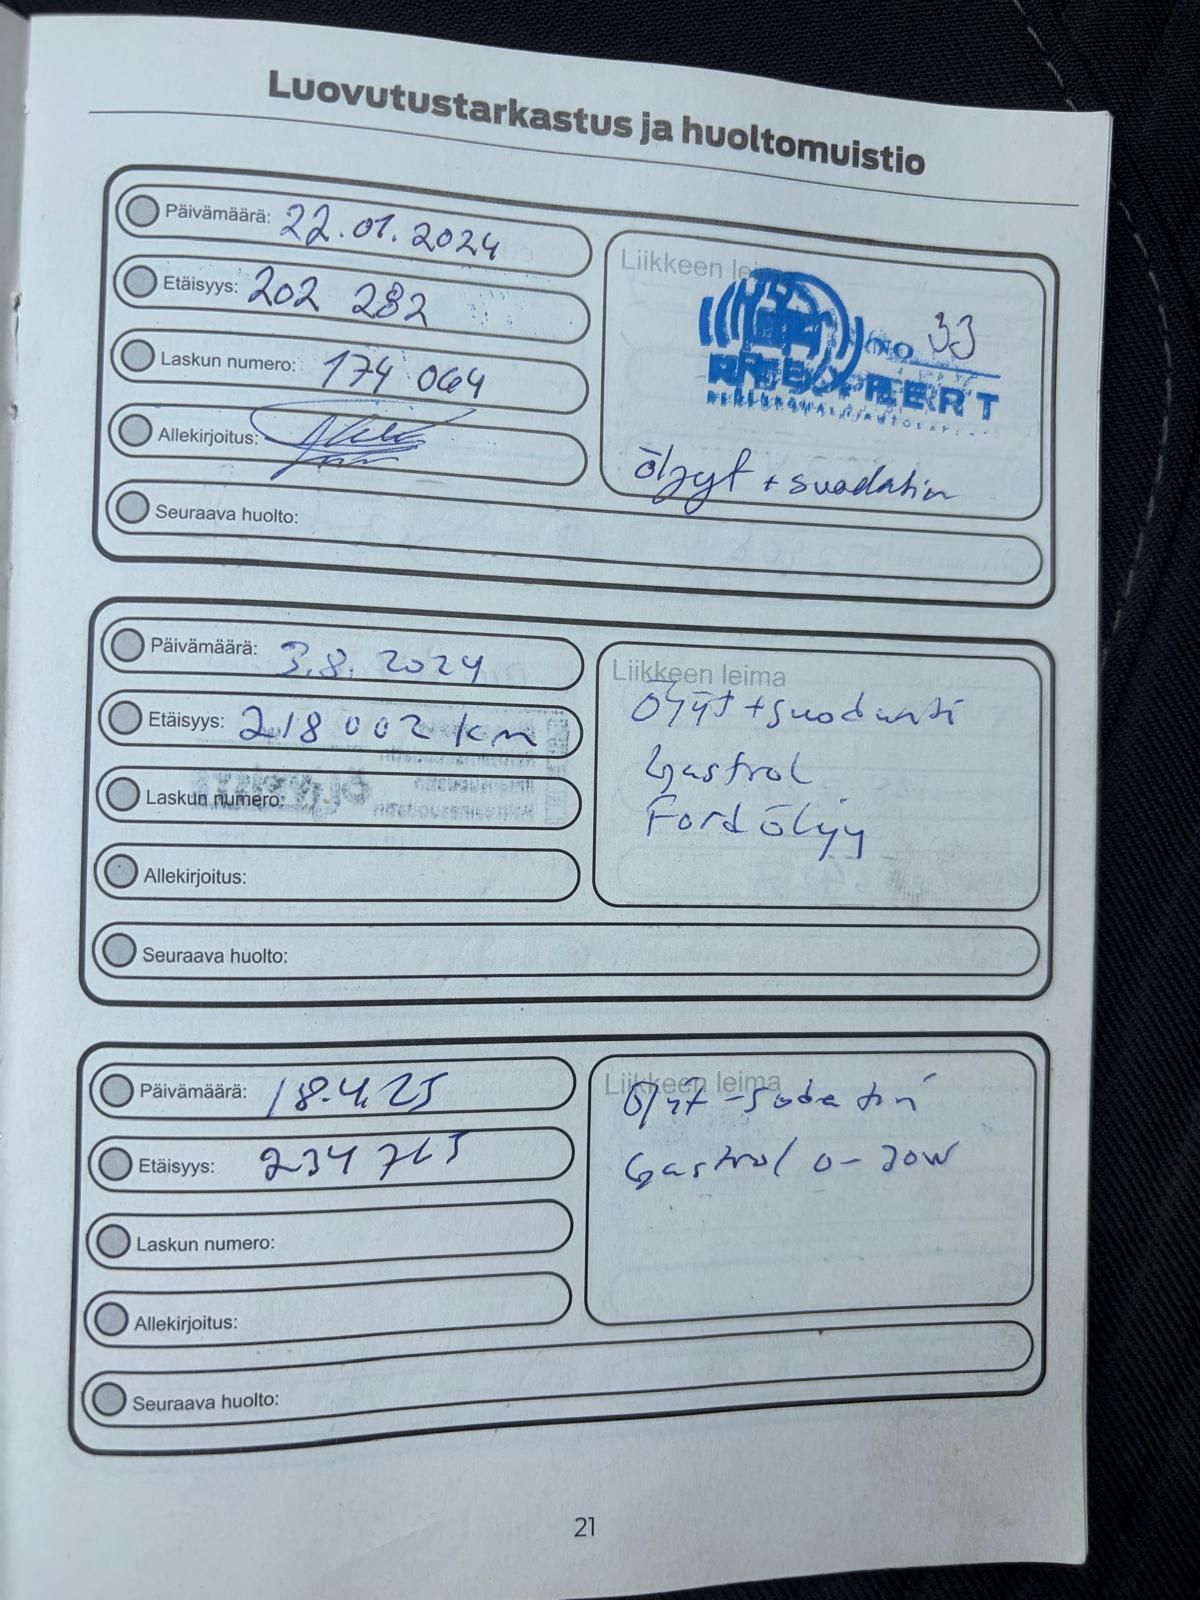 Luovutustarkastus ja huoltomuistio
Päivämäärä: 22.01.2024
Etäisyys: 202 282
Laskun numero: 174 064
Allekirjoitus:
Seuraava huolto:
Liikkeen
33
öljyt + suodatin
Päivämäärä: 3.8. 2024
Etäisyys: 218 002 km
Laskun numero:
Allekirjoitus:
Seuraava huolto:
Liikkeen leima
Castrol
Ford öljyy
Päivämäärä: 18.4.25
Etäisyys:
Laskun numero:
Allekirjoitus:
Seuraava huolto:
Liikkeen leima
Castrol
21